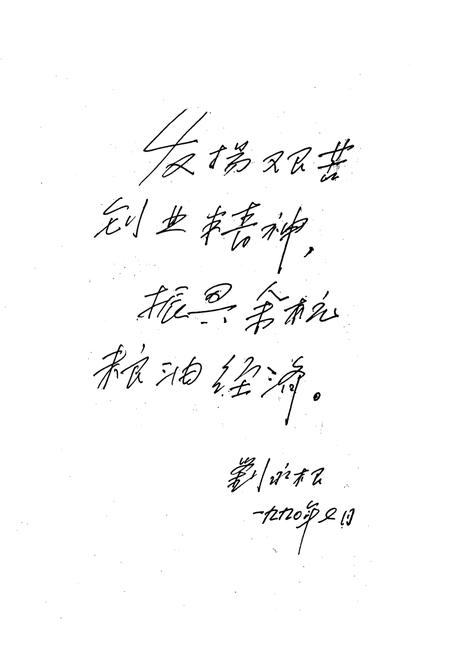 发扬艰苦
创业精神，
振兴余杭
粮油经济。
劉永根
一九九〇年七月